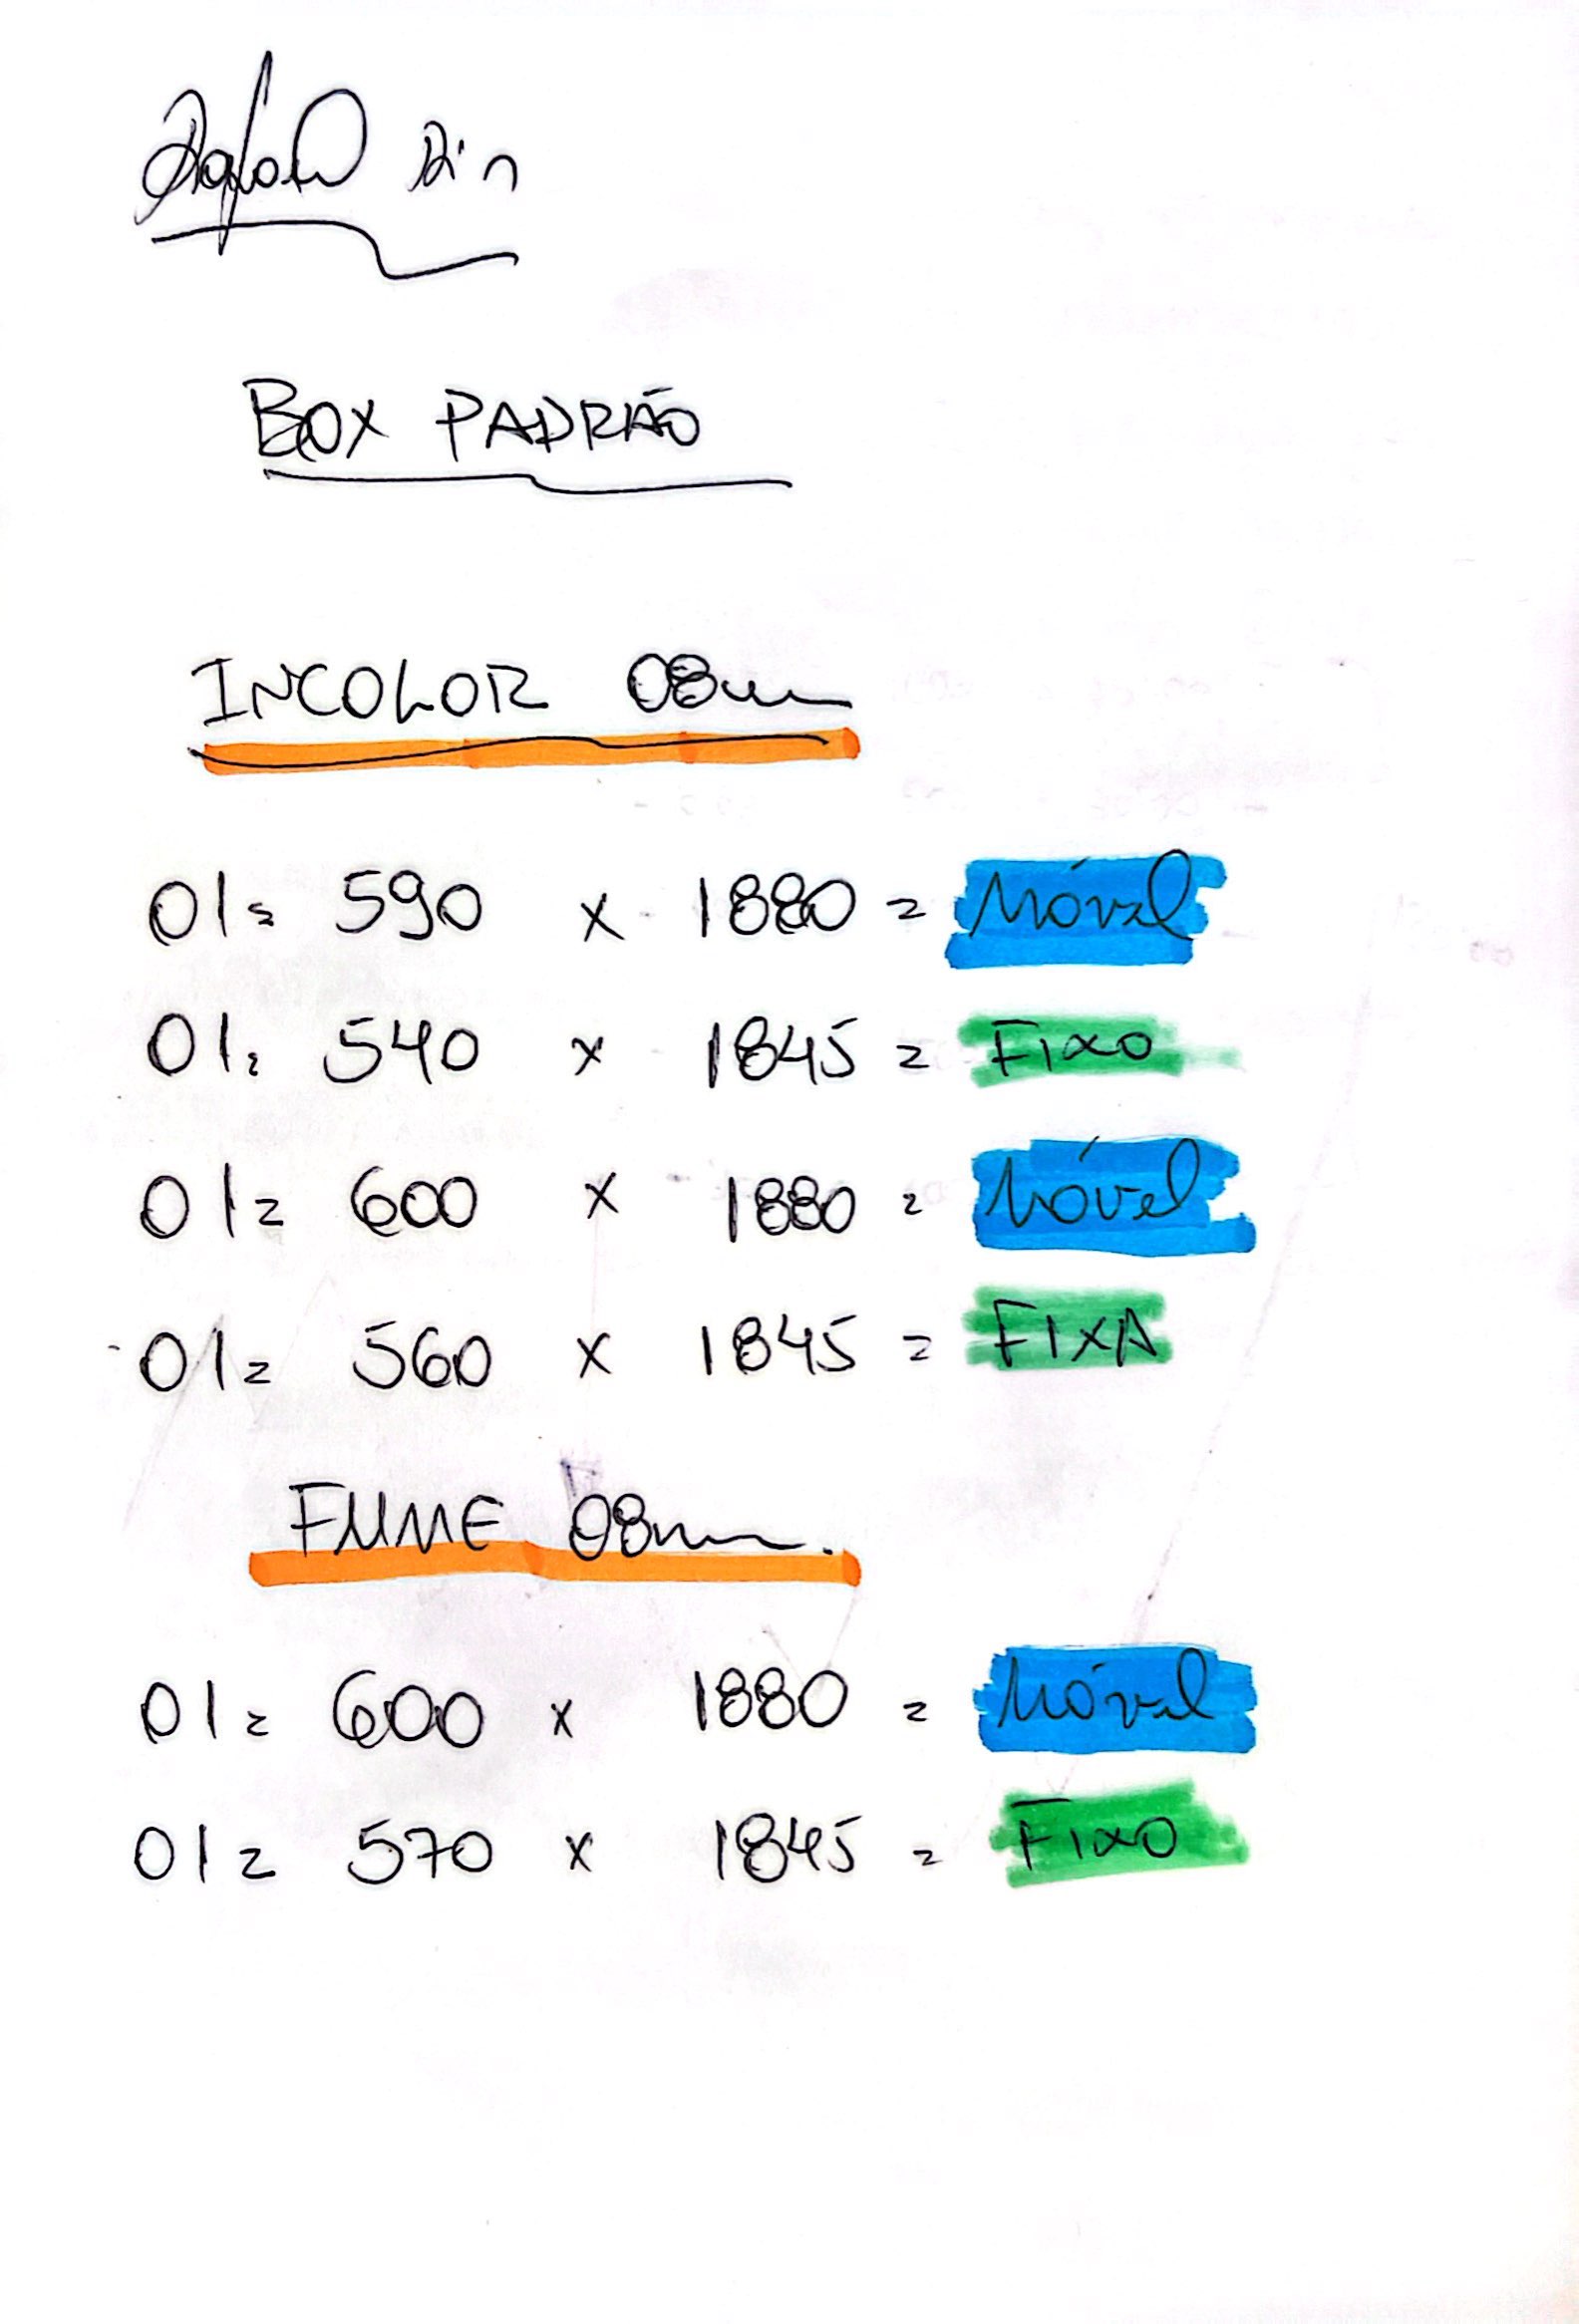 BOX PADRÃO
INCOLOR 08mm
01= 590 x 1880 = Móvel
01= 540 x 1845 = Fixo
01= 600 x 1880 = Móvel
01= 560 x 1845 = FIXA
FUME 08mm.
01= 600 x 1880 = Móvel
01= 570 x 1845 = Fixo